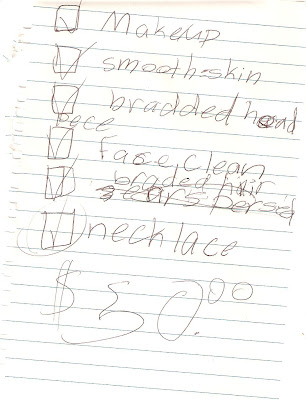 Makeup
smooth-skin
bradded head
pece
face clean
braded hair
ears persed
necklace
$50.00